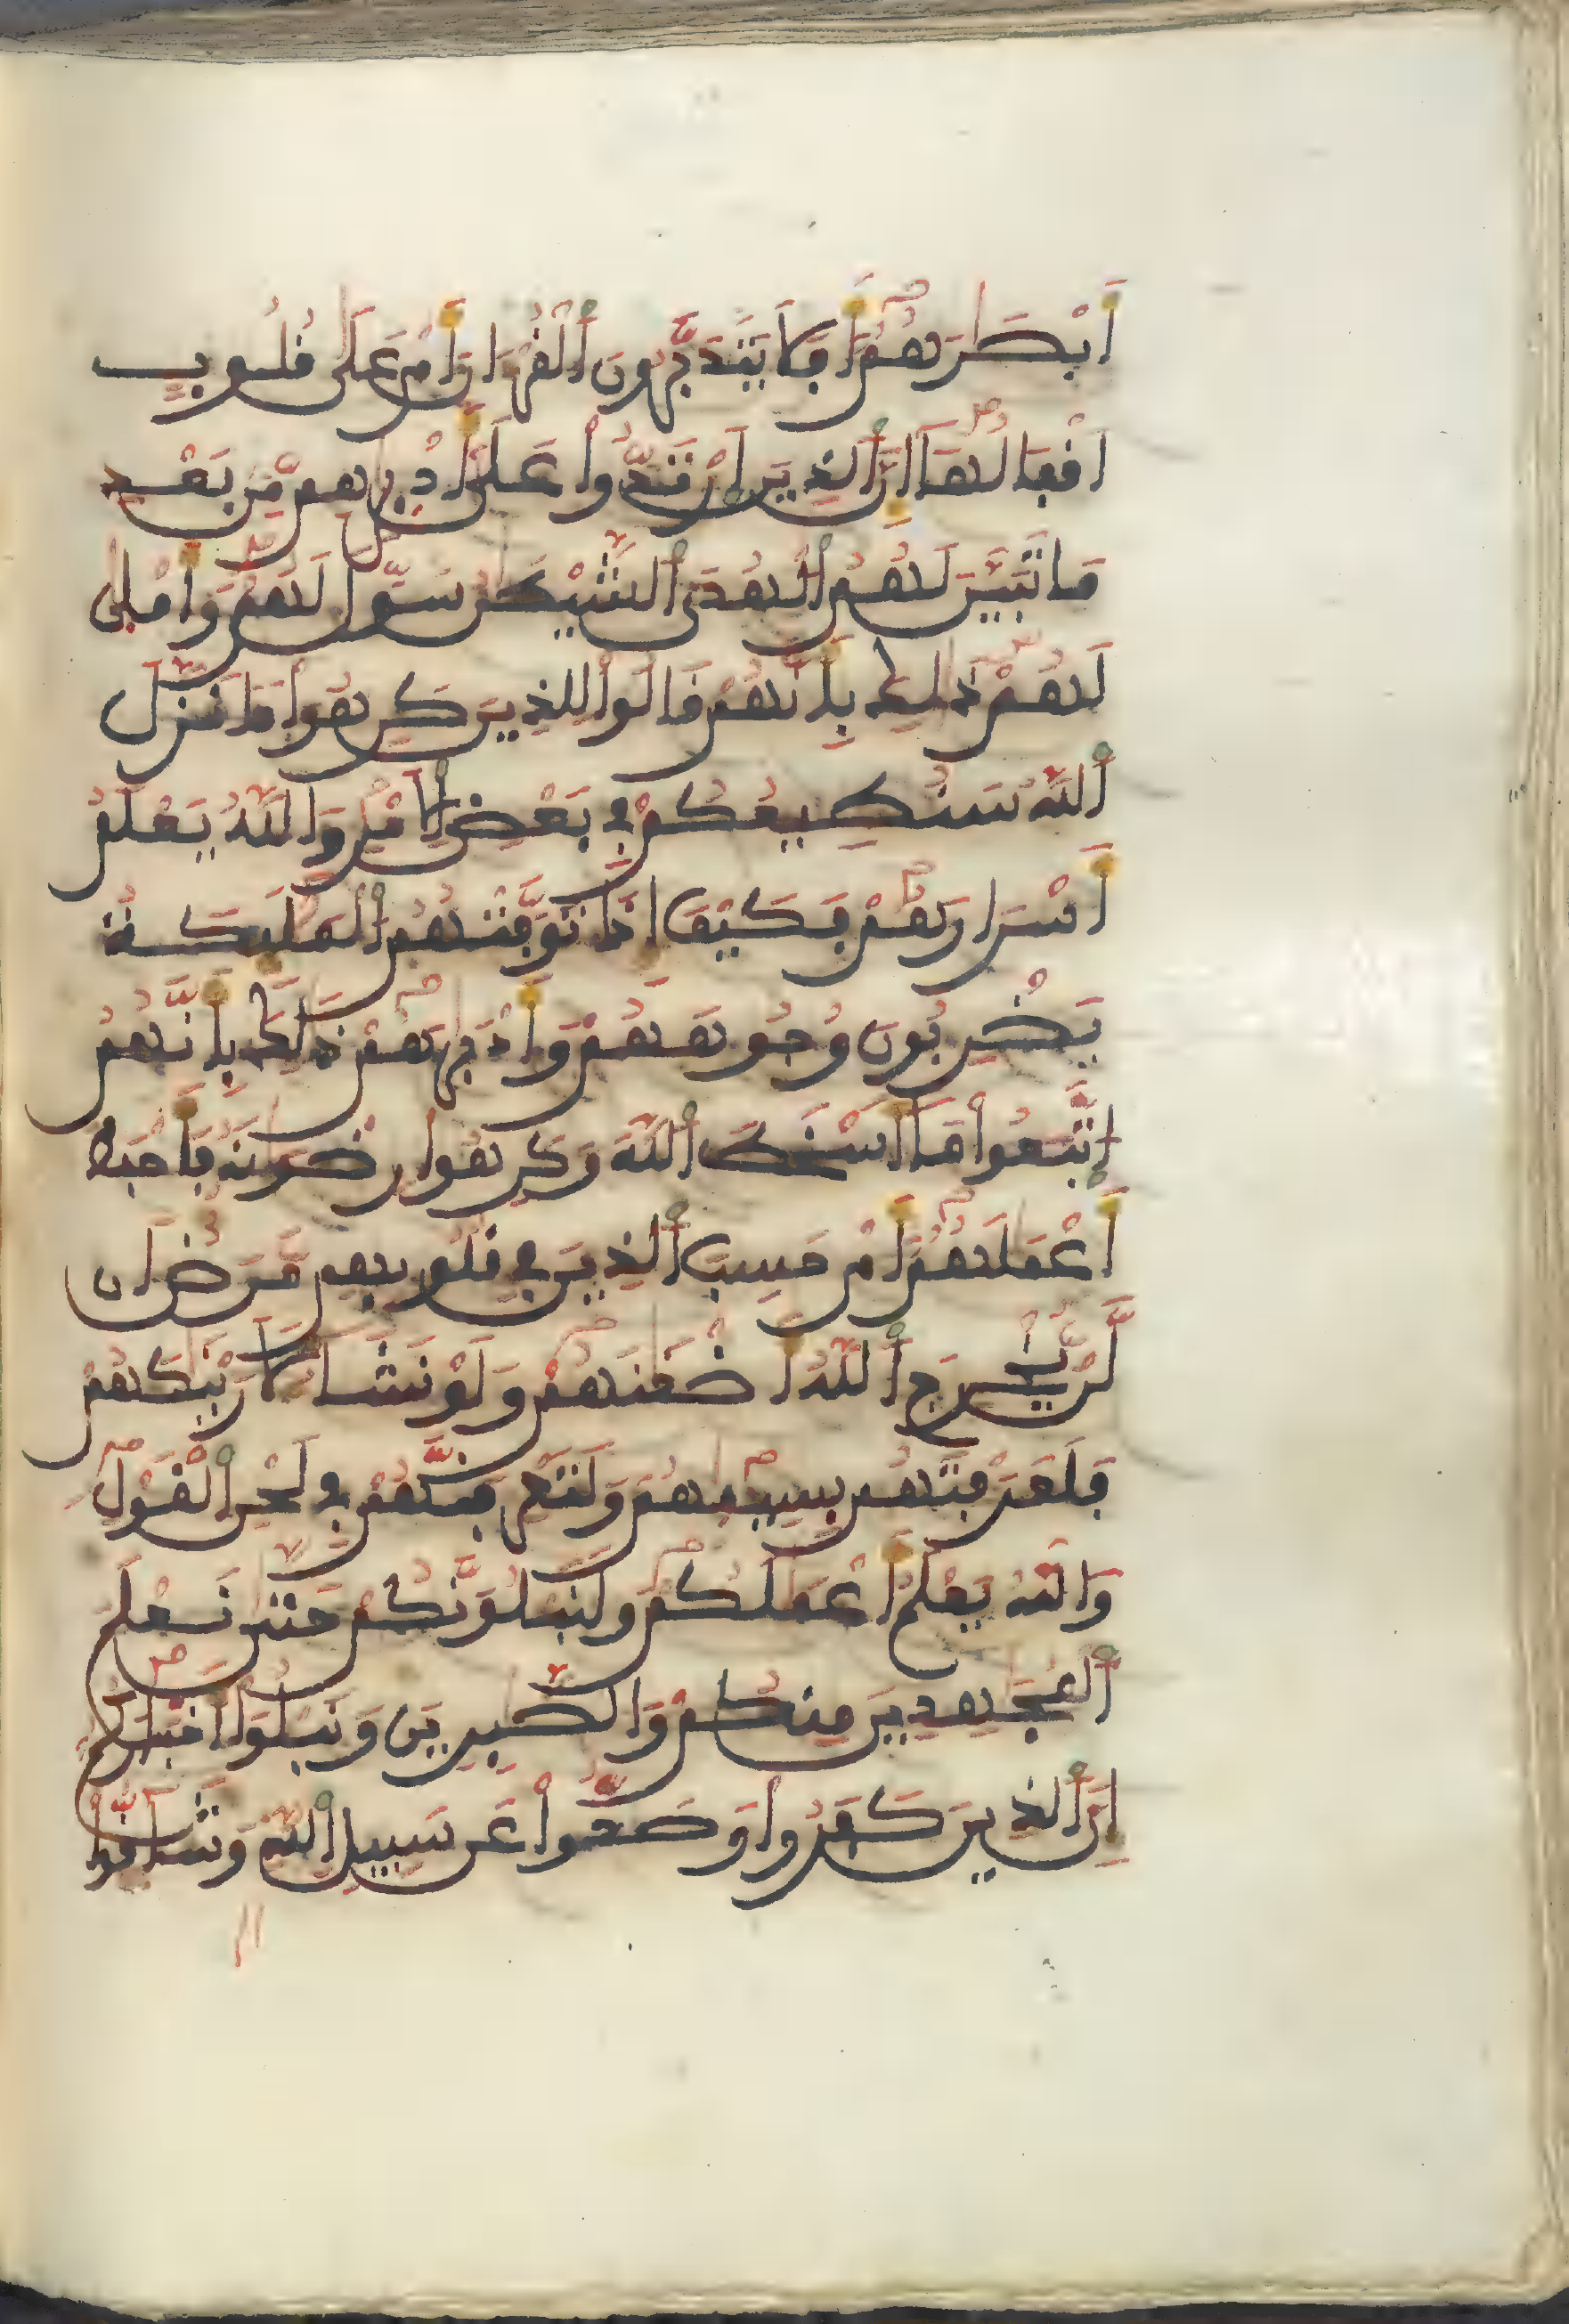 أَبْصَٰرَهُمُۥ أَفَلَا يَتَدَبَّرُونَ ٱلْقُرْءَانَ أَمْ عَلَىٰ قُلُوبٍ
اَقْفَالُهَا إِنَّ ٱلذِينَ ٱرْتَدُّوا۟ عَلَىٰ أَدْبَٰرِهِم مِّنۢ بَعْدِ
مَا تَبَيَّنَ لَهُمُ ٱلْهُدَى ٱلشَّيْطَٰنُ سَوَّلَ لَهُمْ وَأَمْلَىٰ
لَهُمْ ذَٰلِكَ بِأَنَّهُمْ قَالُوا۟ لِلذِينَ كَرِهُوا۟ مَا نَزَّلَ
ٱللَّهُ سَنُطِيعُكُمْ فِي بَعْضِ ٱلَامْرِ وَٱللَّهُ يَعْلَمُ
أَسْرَارَهُمْ فَكَيْفَ إِذَا تَوَفَّتْهُمُ ٱلْمَلَٰٓئِكَةُ
يَضْرِبُونَ وُجُوهَهُمْ وَأَدْبَٰرَهُمْ ذَٰلِكَ بِأَنَّهُمُ
ٱتَّبَعُوا۟ مَا أَسْخَطَ ٱللَّهَ وَكَرِهُوا۟ رِضْوَٰنَهُۥ فَأَحْبَطَ
أَعْمَٰلَهُمُۥ أَمْ حَسِبَ ٱلذِينَ فِي قُلُوبِهِم مَّرَضٌ اَن
لَّنْ يُّخْرِجَ ٱللَّهُ أَضْغَٰنَهُمْ وَلَوْ نَشَآءُ لَأَرَيْنَٰكَهُمْ
فَلَعَرَفْتَهُم بِسِيمَٰهُمْ وَلَتَعْرِفَنَّهُمْ فِي لَحْنِ ٱلْقَوْلِ
وَٱللَّهُ يَعْلَمُ أَعْمَٰلَكُمْ وَلَنَبْلُوَنَّكُمْ حَتَّىٰ نَعْلَمَ
ٱلْمُجَٰهِدِينَ مِنكُمْ وَٱلصَّٰبِرِينَ وَنَبْلُوَا۟ أَخْبَارَكُمُ
إِنَّ ٱلذِينَ كَفَرُوا۟ وَصَدُّوا۟ عَن سَبِيلِ ٱللَّهِ وَشَآقُّوا۟